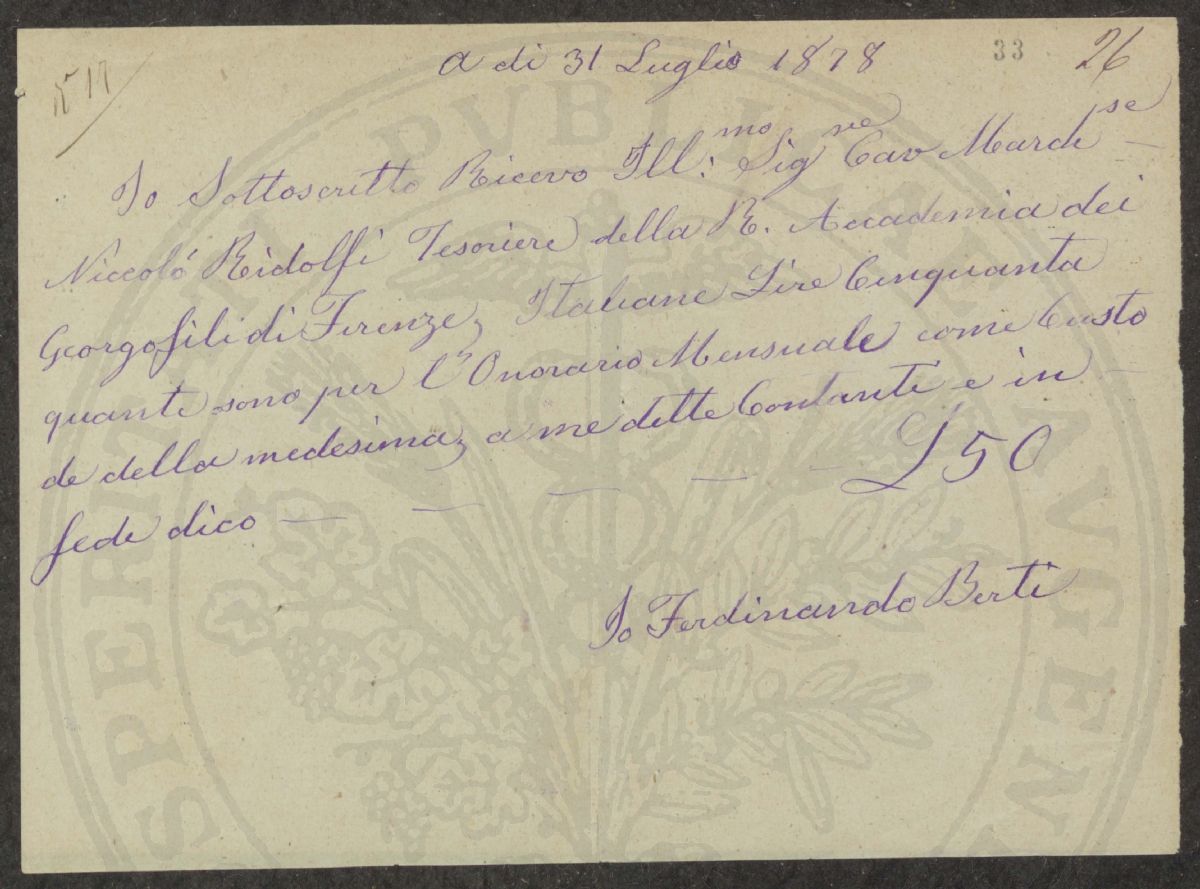 N° 17
A di 31 Luglio 1878
33
26
Io Sottoscritto Ricevo Ill:mo Sigre Cav Marchse
Niccoló Ridolfi Tesoriere della R. Accademia dei
Georgofili di Firenze, Italiane Lire Cinquanta
quante sono per l'Onorario Mensuale come Custo
de della medesima, a me dette Contanti e in
fede dico — — — — — L 50
Io Ferdinando Berti
PROSPERITATI PVBLICAE AVGENDAE